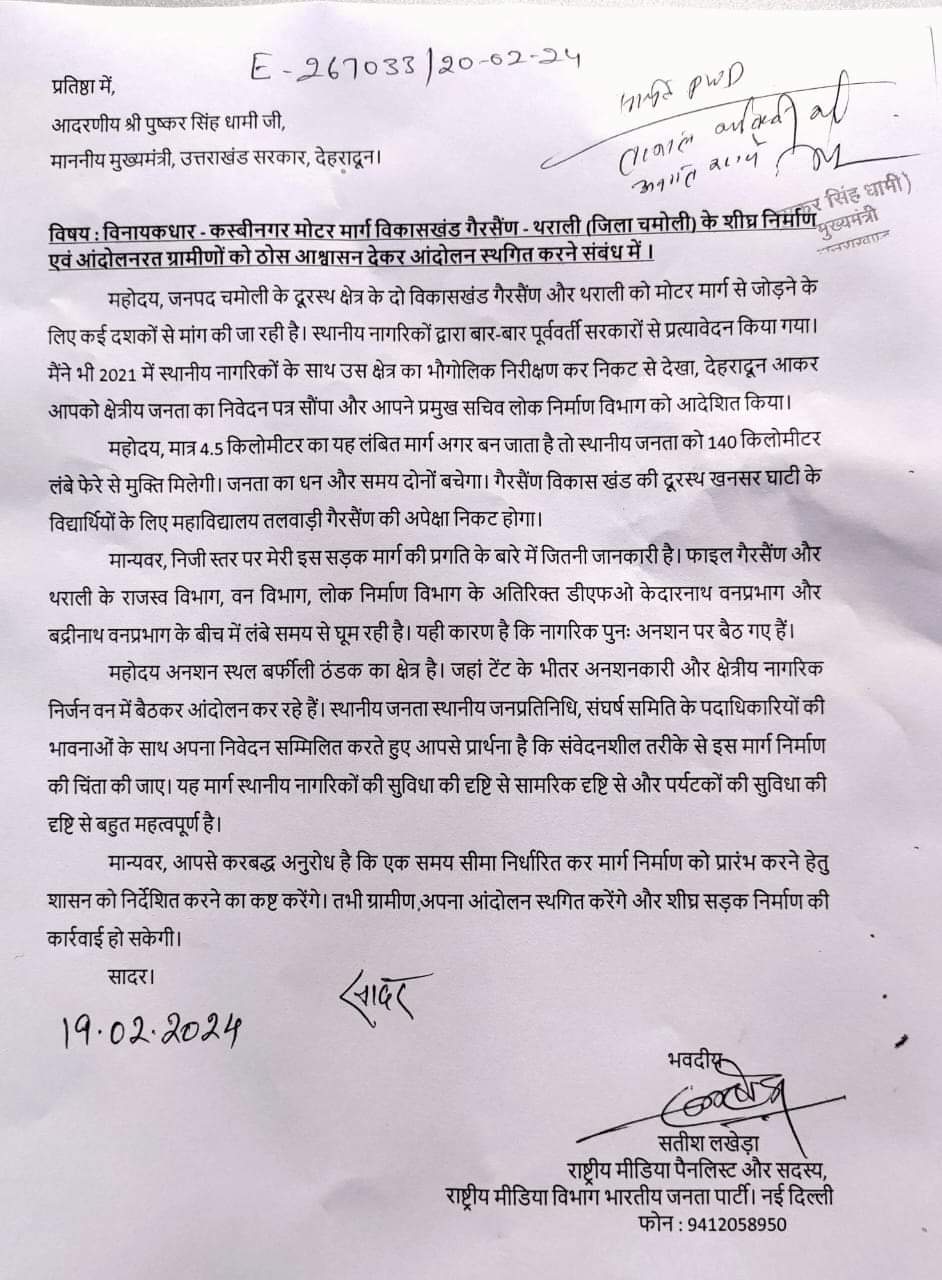 E - 267033/20-02-24
प्रतिष्ठा में,
आदरणीय श्री पुष्कर सिंह धामी जी,
माननीय मुख्यमंत्री, उत्तराखंड सरकार, देहरादून।
PWD
कर सिंह धामी)
मुख्यमंत्री
विषय : विनायकधार - कस्बीनगर मोटर मार्ग विकासखंड गैरसैंण - थराली (जिला चमोली) के शीघ्र निर्माण
एवं आंदोलनरत ग्रामीणों को ठोस आश्वासन देकर आंदोलन स्थगित करने संबंध में ।
महोदय, जनपद चमोली के दूरस्थ क्षेत्र के दो विकासखंड गैरसैंण और थराली को मोटर मार्ग से जोड़ने के
लिए कई दशकों से मांग की जा रही है। स्थानीय नागरिकों द्वारा बार-बार पूर्ववर्ती सरकारों से प्रत्यावेदन किया गया।
मैंने भी 2021 में स्थानीय नागरिकों के साथ उस क्षेत्र का भौगोलिक निरीक्षण कर निकट से देखा, देहरादून आकर
आपको क्षेत्रीय जनता का निवेदन पत्र सौंपा और आपने प्रमुख सचिव लोक निर्माण विभाग को आदेशित किया।
महोदय, मात्र 4.5 किलोमीटर का यह लंबित मार्ग अगर बन जाता है तो स्थानीय जनता को 140 किलोमीटर
लंबे फेरे से मुक्ति मिलेगी। जनता का धन और समय दोनों बचेगा। गैरसैंण विकास खंड की दूरस्थ खनसर घाटी के
विद्यार्थियों के लिए महाविद्यालय तलवाड़ी गैरसैंण की अपेक्षा निकट होगा।
मान्यवर, निजी स्तर पर मेरी इस सड़क मार्ग की प्रगति के बारे में जितनी जानकारी है। फाइल गैरसैंण और
थराली के राजस्व विभाग, वन विभाग, लोक निर्माण विभाग के अतिरिक्त डीएफओ केदारनाथ वनप्रभाग और
बद्रीनाथ वनप्रभाग के बीच में लंबे समय से घूम रही है। यही कारण है कि नागरिक पुनः अनशन पर बैठ गए हैं।
महोदय अनशन स्थल बर्फीली ठंडक का क्षेत्र है। जहां टेंट के भीतर अनशनकारी और क्षेत्रीय नागरिक
निर्जन वन में बैठकर आंदोलन कर रहे हैं। स्थानीय जनता स्थानीय जनप्रतिनिधि, संघर्ष समिति के पदाधिकारियों की
भावनाओं के साथ अपना निवेदन सम्मिलित करते हुए आपसे प्रार्थना है कि संवेदनशील तरीके से इस मार्ग निर्माण
की चिंता की जाए। यह मार्ग स्थानीय नागरिकों की सुविधा की दृष्टि से सामरिक दृष्टि से और पर्यटकों की सुविधा की
दृष्टि से बहुत महत्वपूर्ण है।
मान्यवर, आपसे करबद्ध अनुरोध है कि एक समय सीमा निर्धारित कर मार्ग निर्माण को प्रारंभ करने हेतु
शासन को निर्देशित करने का कष्ट करेंगे। तभी ग्रामीण,अपना आंदोलन स्थगित करेंगे और शीघ्र सड़क निर्माण की
कार्रवाई हो सकेगी।
सादर।
सादर
19.02.2024
भवदीय
सतीश लखेड़ा
राष्ट्रीय मीडिया पैनलिस्ट और सदस्य,
राष्ट्रीय मीडिया विभाग भारतीय जनता पार्टी। नई दिल्ली
फोन : 9412058950